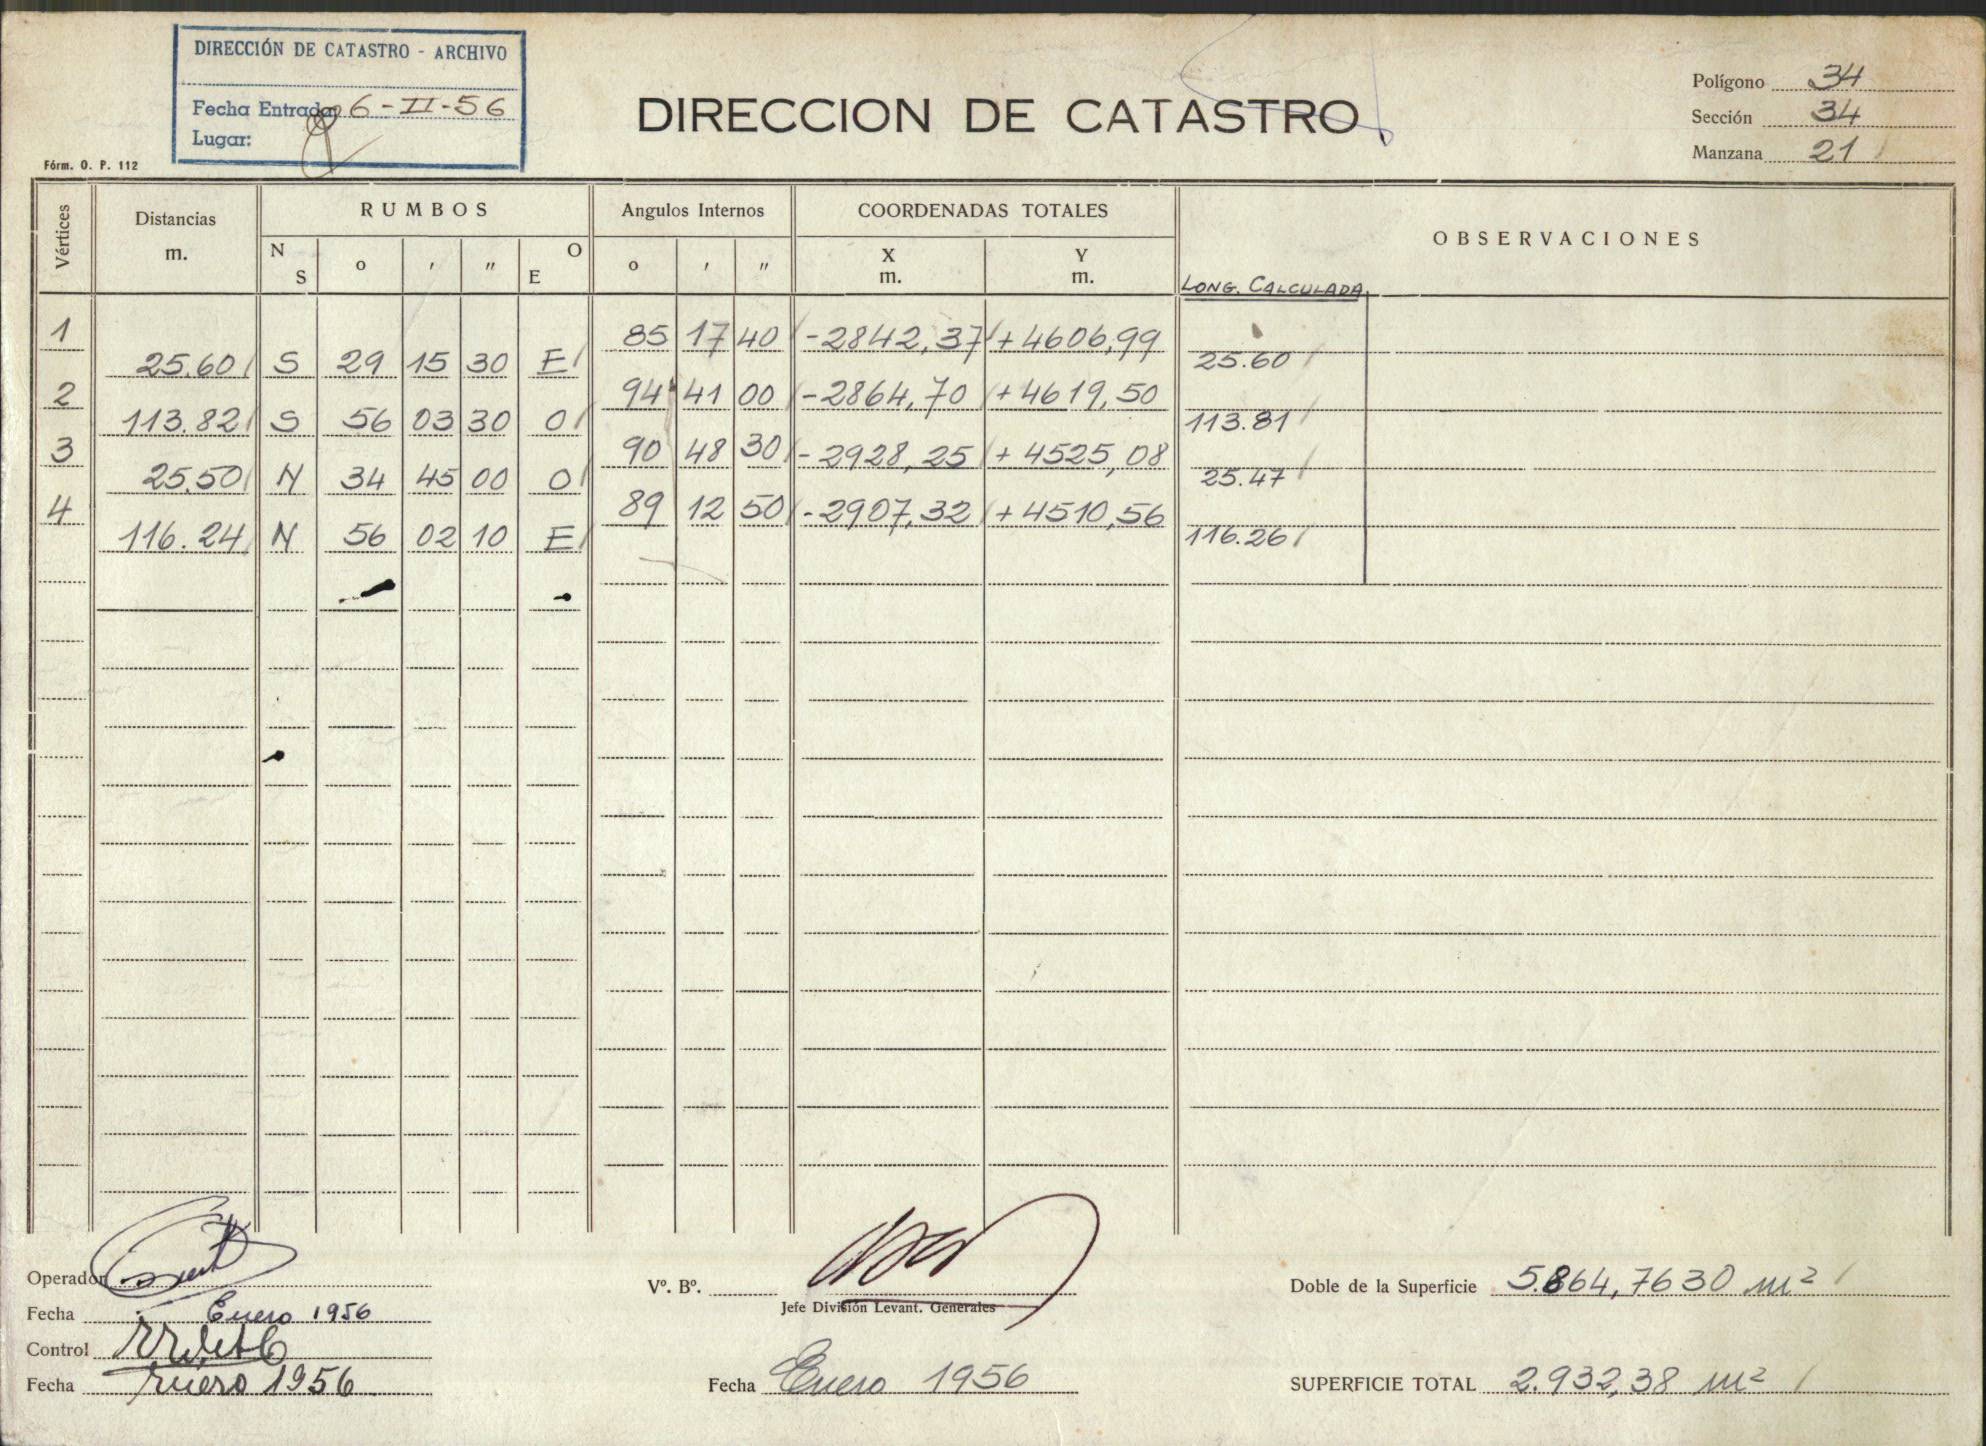 DIRECCIÓN DE CATASTRO - ARCHIVO
Fecha Entrada 6-II-56
Lugar:
Fórm. O. P. 112
DIRECCION DE CATASTRO
Polígono 34
Sección 34
Manzana 21
Vértices
Distancias
m.
RUMBOS
N S
o ' "
O E
Angulos Internos
o ' "
COORDENADAS TOTALES
X m.
Y m.
OBSERVACIONES
LONG. CALCULADA.
1 85 17 40 -2842,37 +4606,99
25.60 S 29 15 30 E 25.60
2 94 41 00 -2864,70 +4619,50
113.82 S 56 03 30 O 113.81
3 90 48 30 -2928,25 +4525,08
25.50 N 34 45 00 O 25.47
4 89 12 50 -2907,32 +4510,56
116.24 N 56 02 10 E 116.26
Operador
Fecha Enero 1956
Control
Fecha Enero 1956
Vº. Bº.
Jefe División Levant. Generales
Fecha Enero 1956
Doble de la Superficie 5.864,7630 m²
SUPERFICIE TOTAL 2.932,38 m²